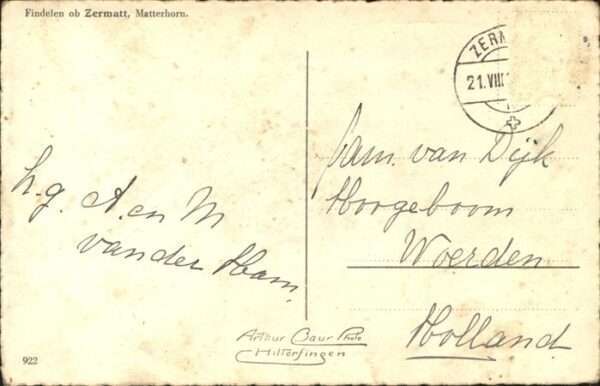 Findelen ob Zermatt, Matterhorn.
ZERM
21.VIII
h.g. A. en M
van der Ham.
Fam. van Dijk
Hoogeboom
Woerden
Holland
Arthur Baur Photo
Hilterfingen
922